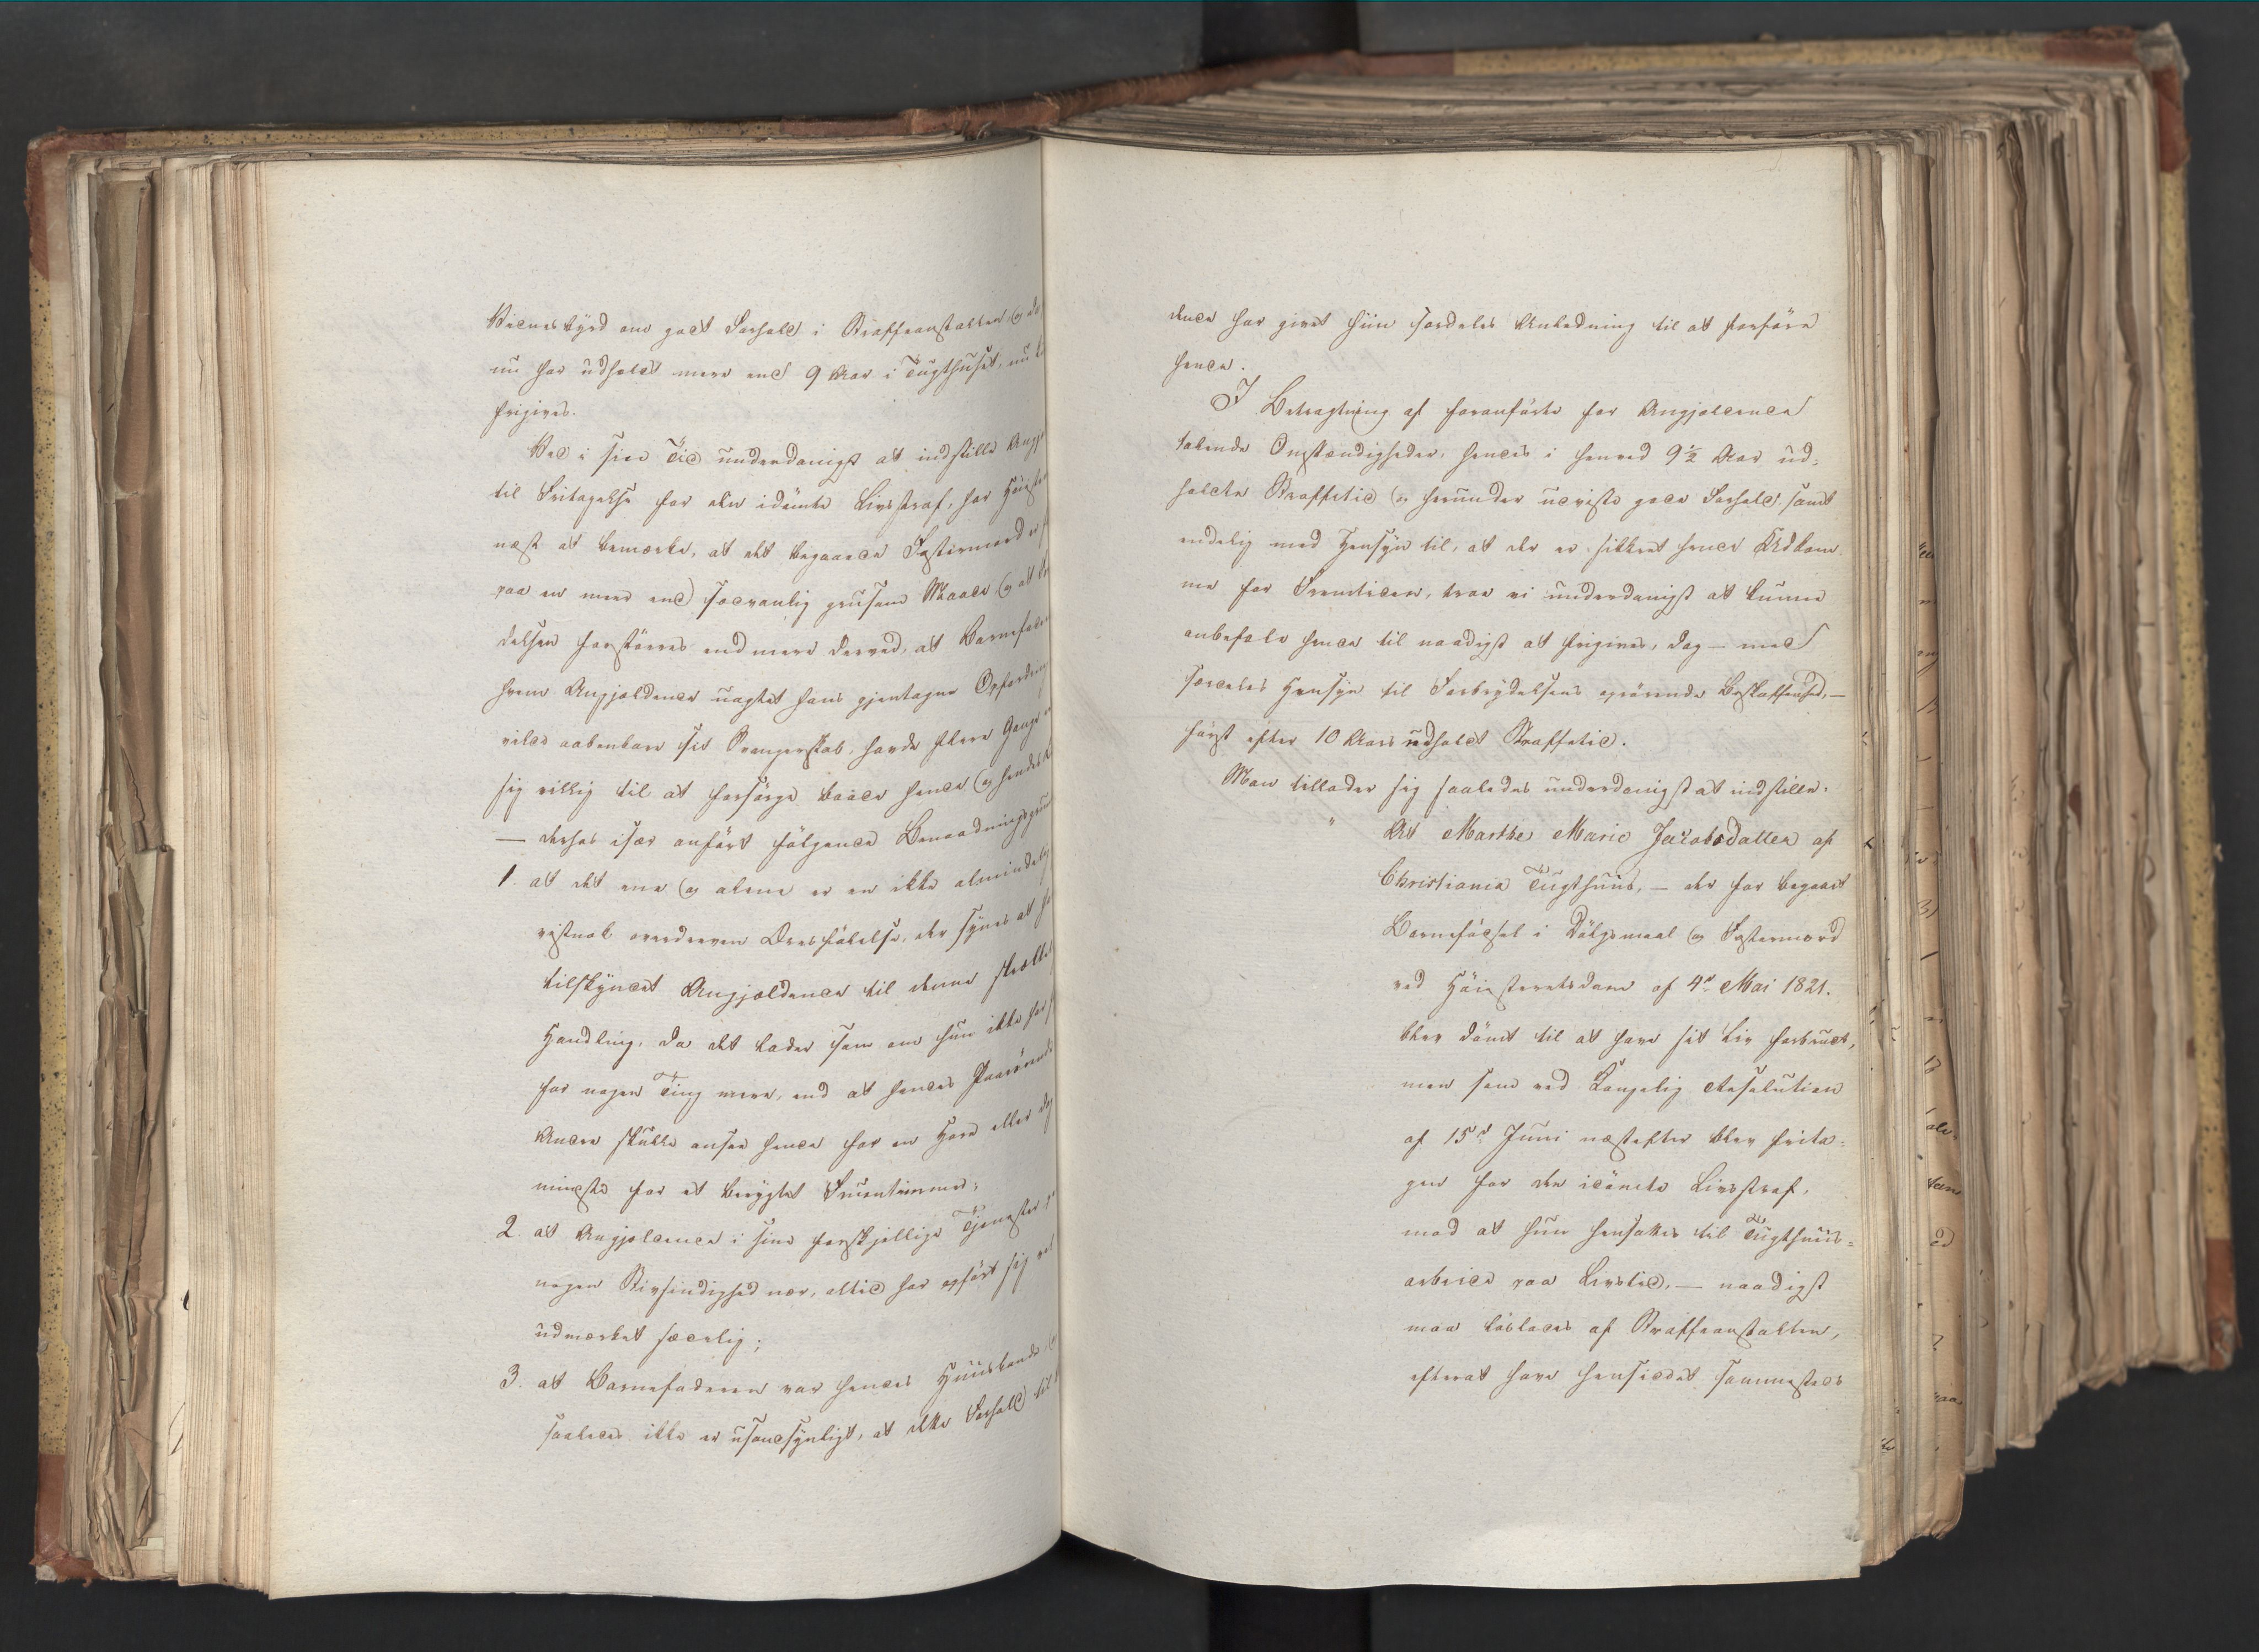 Vidnesbyrd om godt Forhold i Straffeanstalten, og da
nu har udholdt mere end 9 Aar i Tugthuset, nu
frigives.
Ved i sin Tid underdanigst at indstille Angj
til Fritagelse for den idømte Livsstraf, har Høieste
næst at bemærke, at det begaaede Fostermord er
paa en meer end sædvanlig grusom Maade, og at
delsen forstørres end mere derved, at Barnefaderen
hvem Angjældende uagtet hans gjentagne Opfordring
vilde aabenbare sit Svangerskab, havde flere Gange
sig villig til at forsørge baade hende og hendes
— derhos især anført følgende Benaadningsgrunde
1. at det ene og alene er en ikke almindelig
vistnok overdreven Æresfølelse, der synes at
tilskyndet Angjældende til denne skrækkelige
Handling, da det lader som om hun ikke har
for nogen Ting mere, end at hendes Paarørende
Andre skulle ansee hende for en Hore eller
mindste for et berygtet Fruentimmer;
2. at Angjældende i sine forskjellige Tjenester
nogen Stivsindighed nær, altid har opført sig vel
udmærket sædelig;
3. at Barnefaderen var hendes Huusbonde,
saaledes ikke er usandsynligt, at dette Forhold til
denne har givet hiin særdeles Anledning til at forføre
hende.
I Betragtning af foranførte for Angjældende
talende Omstændigheder, hendes i henved 9 1/2 Aar ud=
holdte Straffetid og herunder udviste gode Forhold, samt
endelig med Hensyn til, at der er sikkret hende Udkom
me for Fremtiden, troe vi underdanigst at kunne
anbefale hende til naadigst at frigives, dog — med
særdeles Hensyn til Forbrydelsens oprørende Beskaffenhed, —
først efter 10 Aars udholdt Straffetid.
Man tillader sig saaledes underdanigst at indstille:
" At Marthe Marie Jacobsdatter af
Christiania Tugthuus, — der for begaaet
Barnefødsel i Dølgsmaal og Fostermord
ved Høiesteretsdom af 4de Mai 1821.
blev dømt til at have sit Liv forbrudt,
men som ved Kongelig Resolution
af 15de Juni næstefter blev frita=
gen for den idømte Livsstraf,
mod at hun hensattes til Tugthuus=
arbeide paa Livstid, — naadigst
maa løslades af Straffeanstalten,
efterat have hensiddet sammesteds